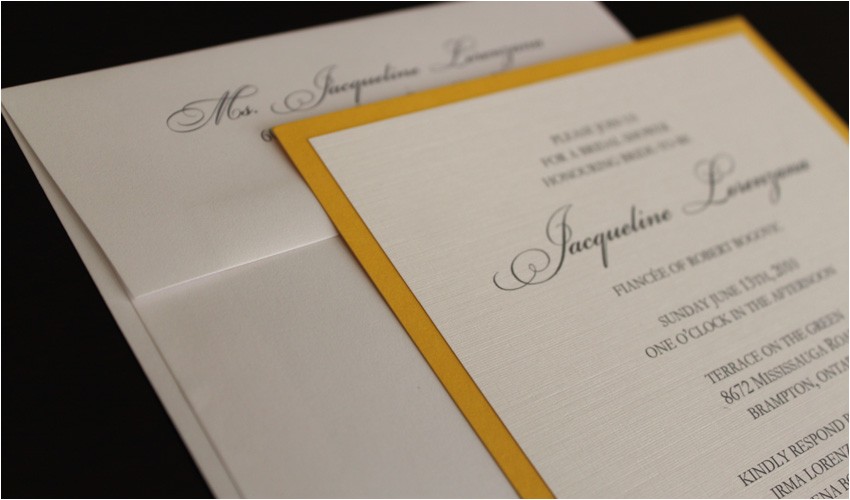 Ms. Jacqueline Lorenzana
PLEASE JOIN US
FOR A BRIDAL SHOWER
HONOURING BRIDE TO BE
Jacqueline Lorenzana
FIANCÉE OF ROBERT BOGOVIC
SUNDAY JUNE 13TH, 2010
ONE O'CLOCK IN THE AFTERNOON
TERRACE ON THE GREEN
8672 MISSISSAUGA ROA
BRAMPTON, ONTA
KINDLY RESPOND
IRMA LORENZ